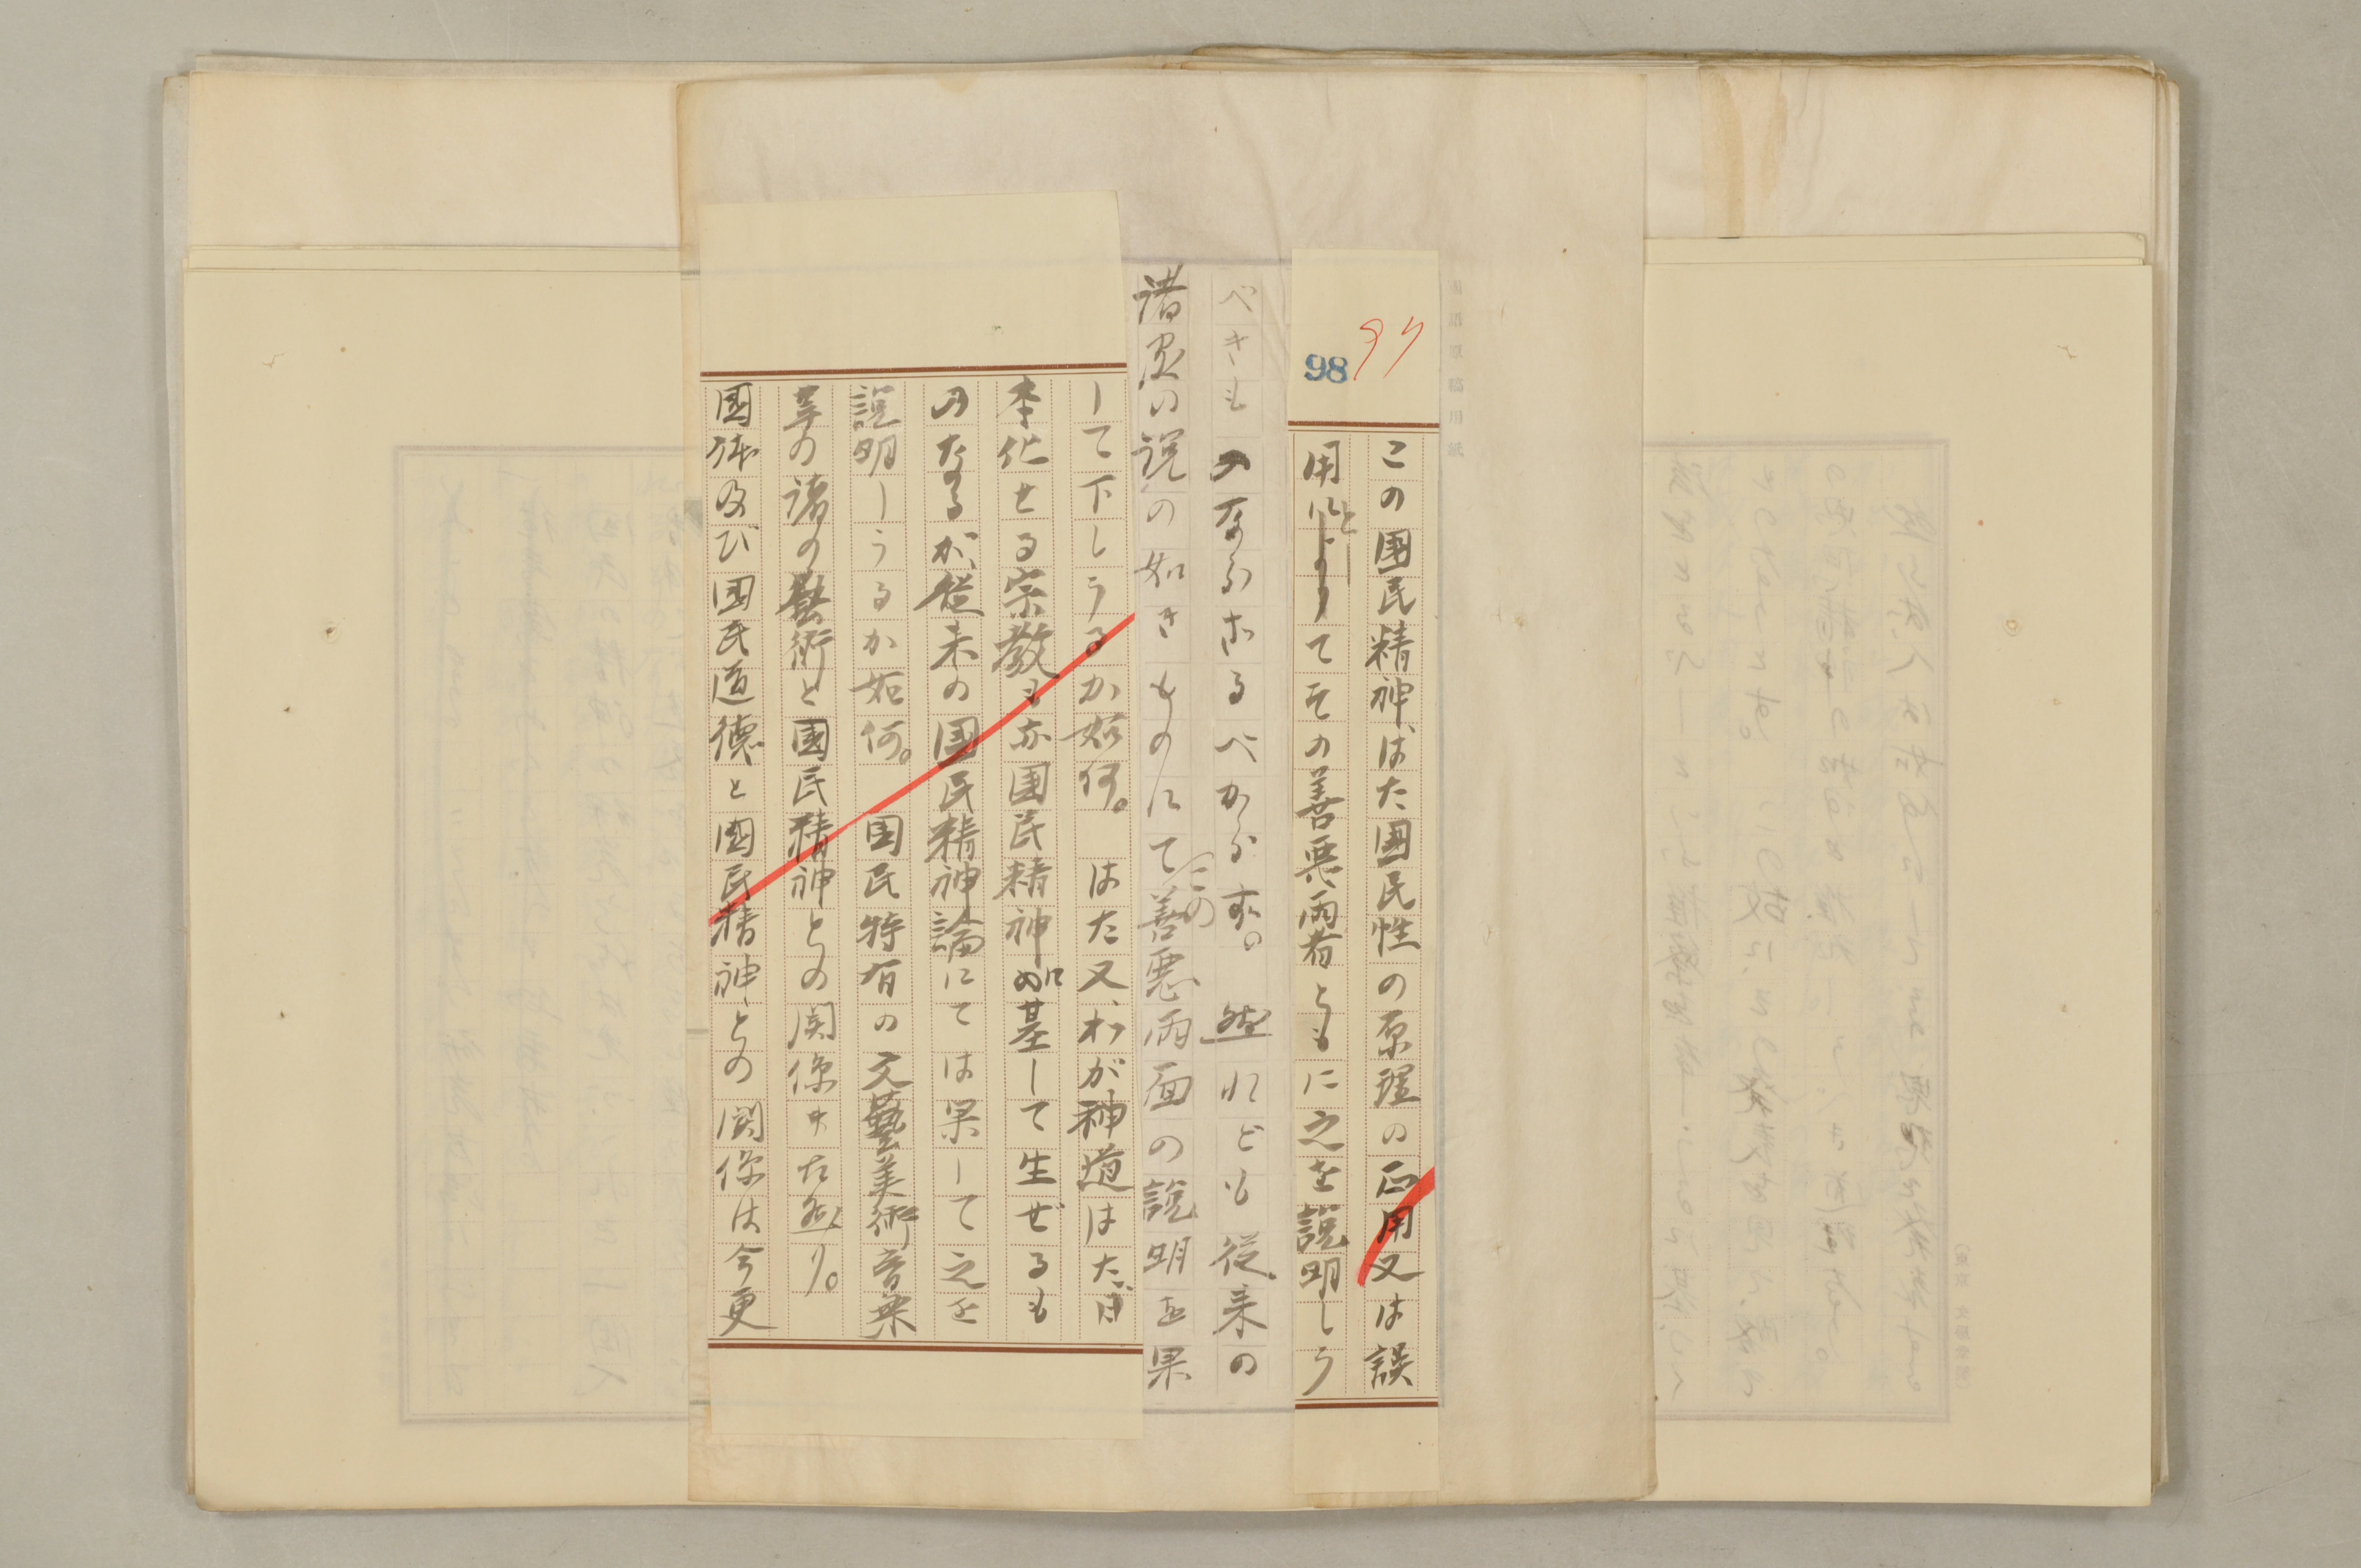 97
98
この国民精神はた国民性の原理の正用又は誤
用にと よりてその善悪両者ともに之を説明しう
べきものならざるべからず。然れども従来の
諸家の説の如きものにてこの善悪両面の説明を果
して下しうるか如何。はた又、わが神道はた、日
本化せる宗教も亦国民精神に基して生ぜるも
のなるが、従来の国民精神論にては果して之を
説明しうるか如何。国民特有の文藝美術音楽
等の諸の藝術と国民精神との関係亦た然り。
國体及び国民道徳と國民精神との関係は今更